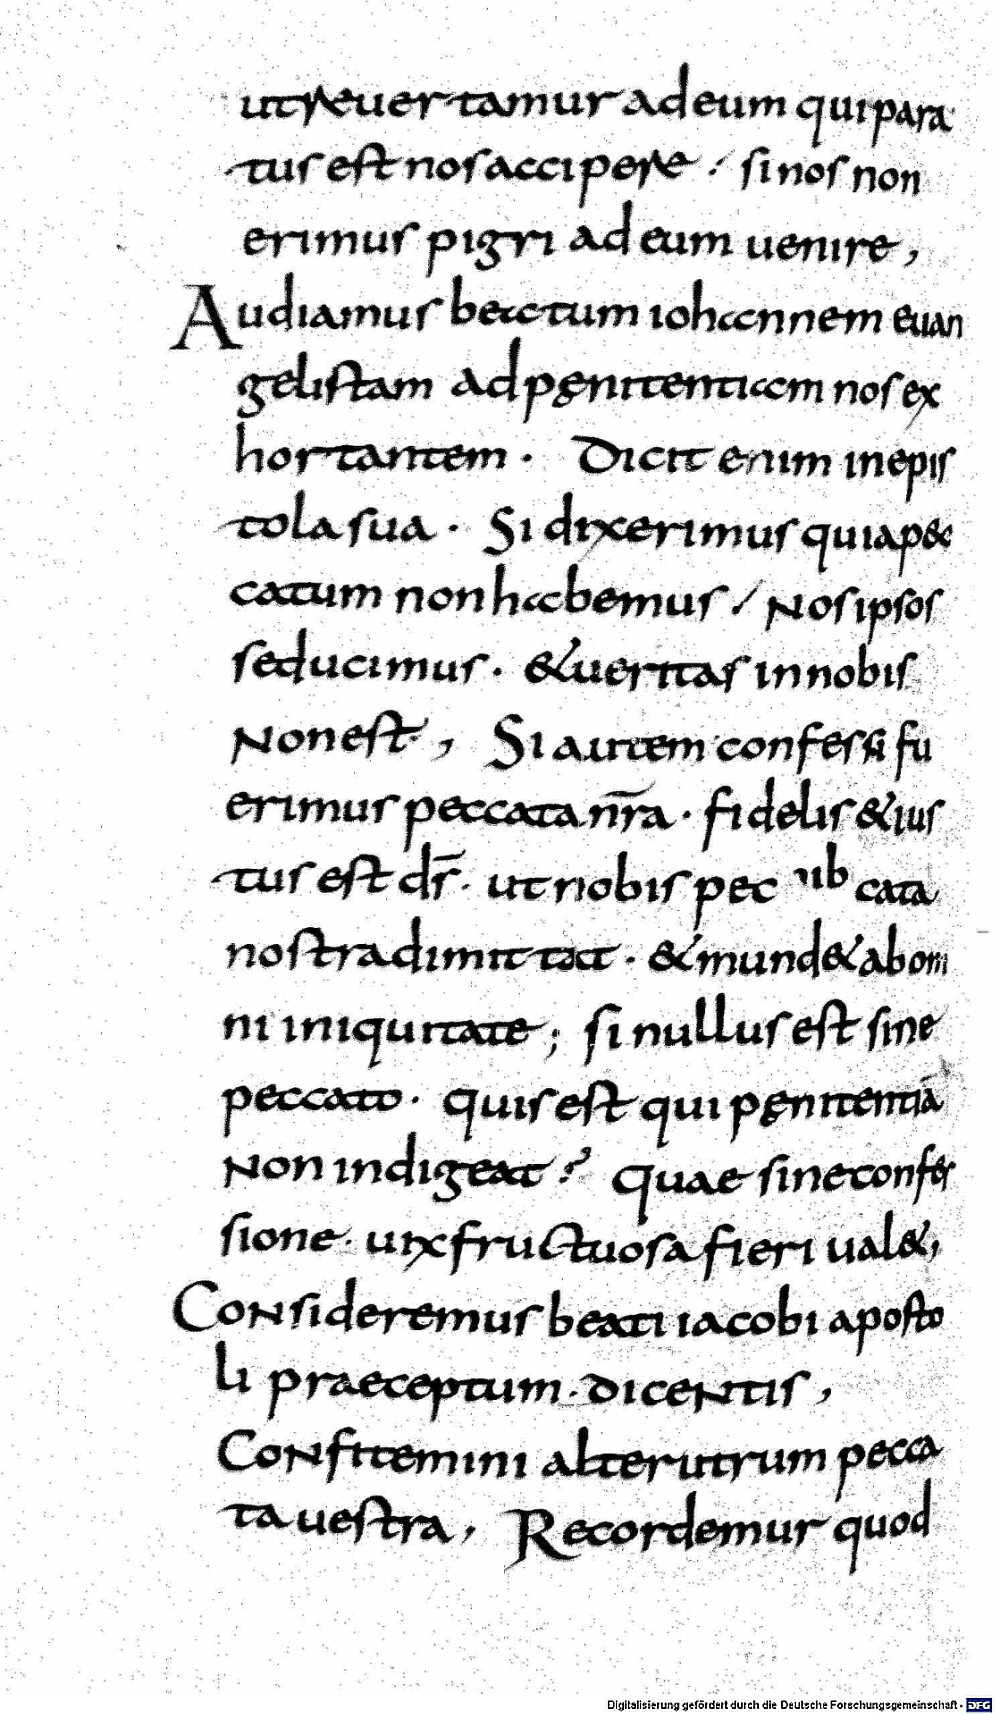 utreuertamur ad eum qui para
tus est nos accipere / si nos non
erimus pigri ad eum uenire,
Audiamus beatum iohannem euan
gelistam ad pęnitentiam nos ex
hortantem · Dicit enim in epis
tola sua · Si dixerimus quia pec
catum non habemus / Nos ipsos
seducimus · & ueritas in nobis
Non est, Si autem confessi fu
erimus peccata nr̄a · fidelis & ius
tus est dſ̄ · ut nobis pec cata
nostra dimittat · & mund& ab om
ni iniquitate; si nullus est sine
peccato · quis est qui pęnitentiā
Non indigeat? Quae sine confes
sione · uix fructuosa fieri ual&,
Consideremus beati iacobi aposto
li praeceptum · dicentis,
Confitemini alterutrum pecca
ta uestra, Recordemur quod
Digitalisierung gefördert durch die Deutsche Forschungsgemeinschaft - DFG